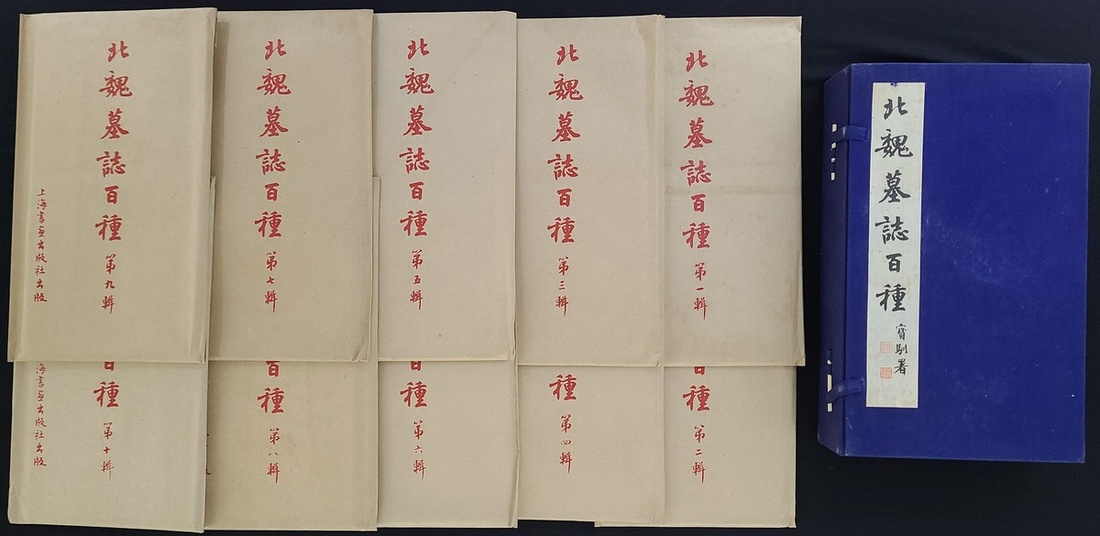 北魏墓誌百種
署
北魏墓誌百種 第一輯
北魏墓誌百種 第三輯
北魏墓誌百種 第五輯
北魏墓誌百種 第七輯
北魏墓誌百種 第九輯
上海書画出版社出版
百種 第二輯
種 第四輯
百種 第六輯
百種 第八輯
百種 第十輯
海書画出版社出版